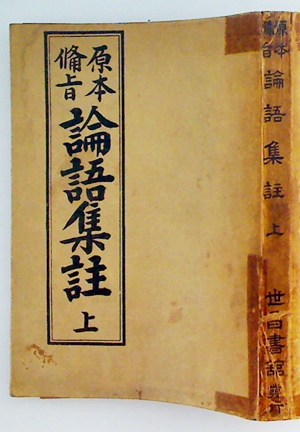 原本
備旨
論語集註
上
原本
備旨
論語集註 上
世昌書館 發行